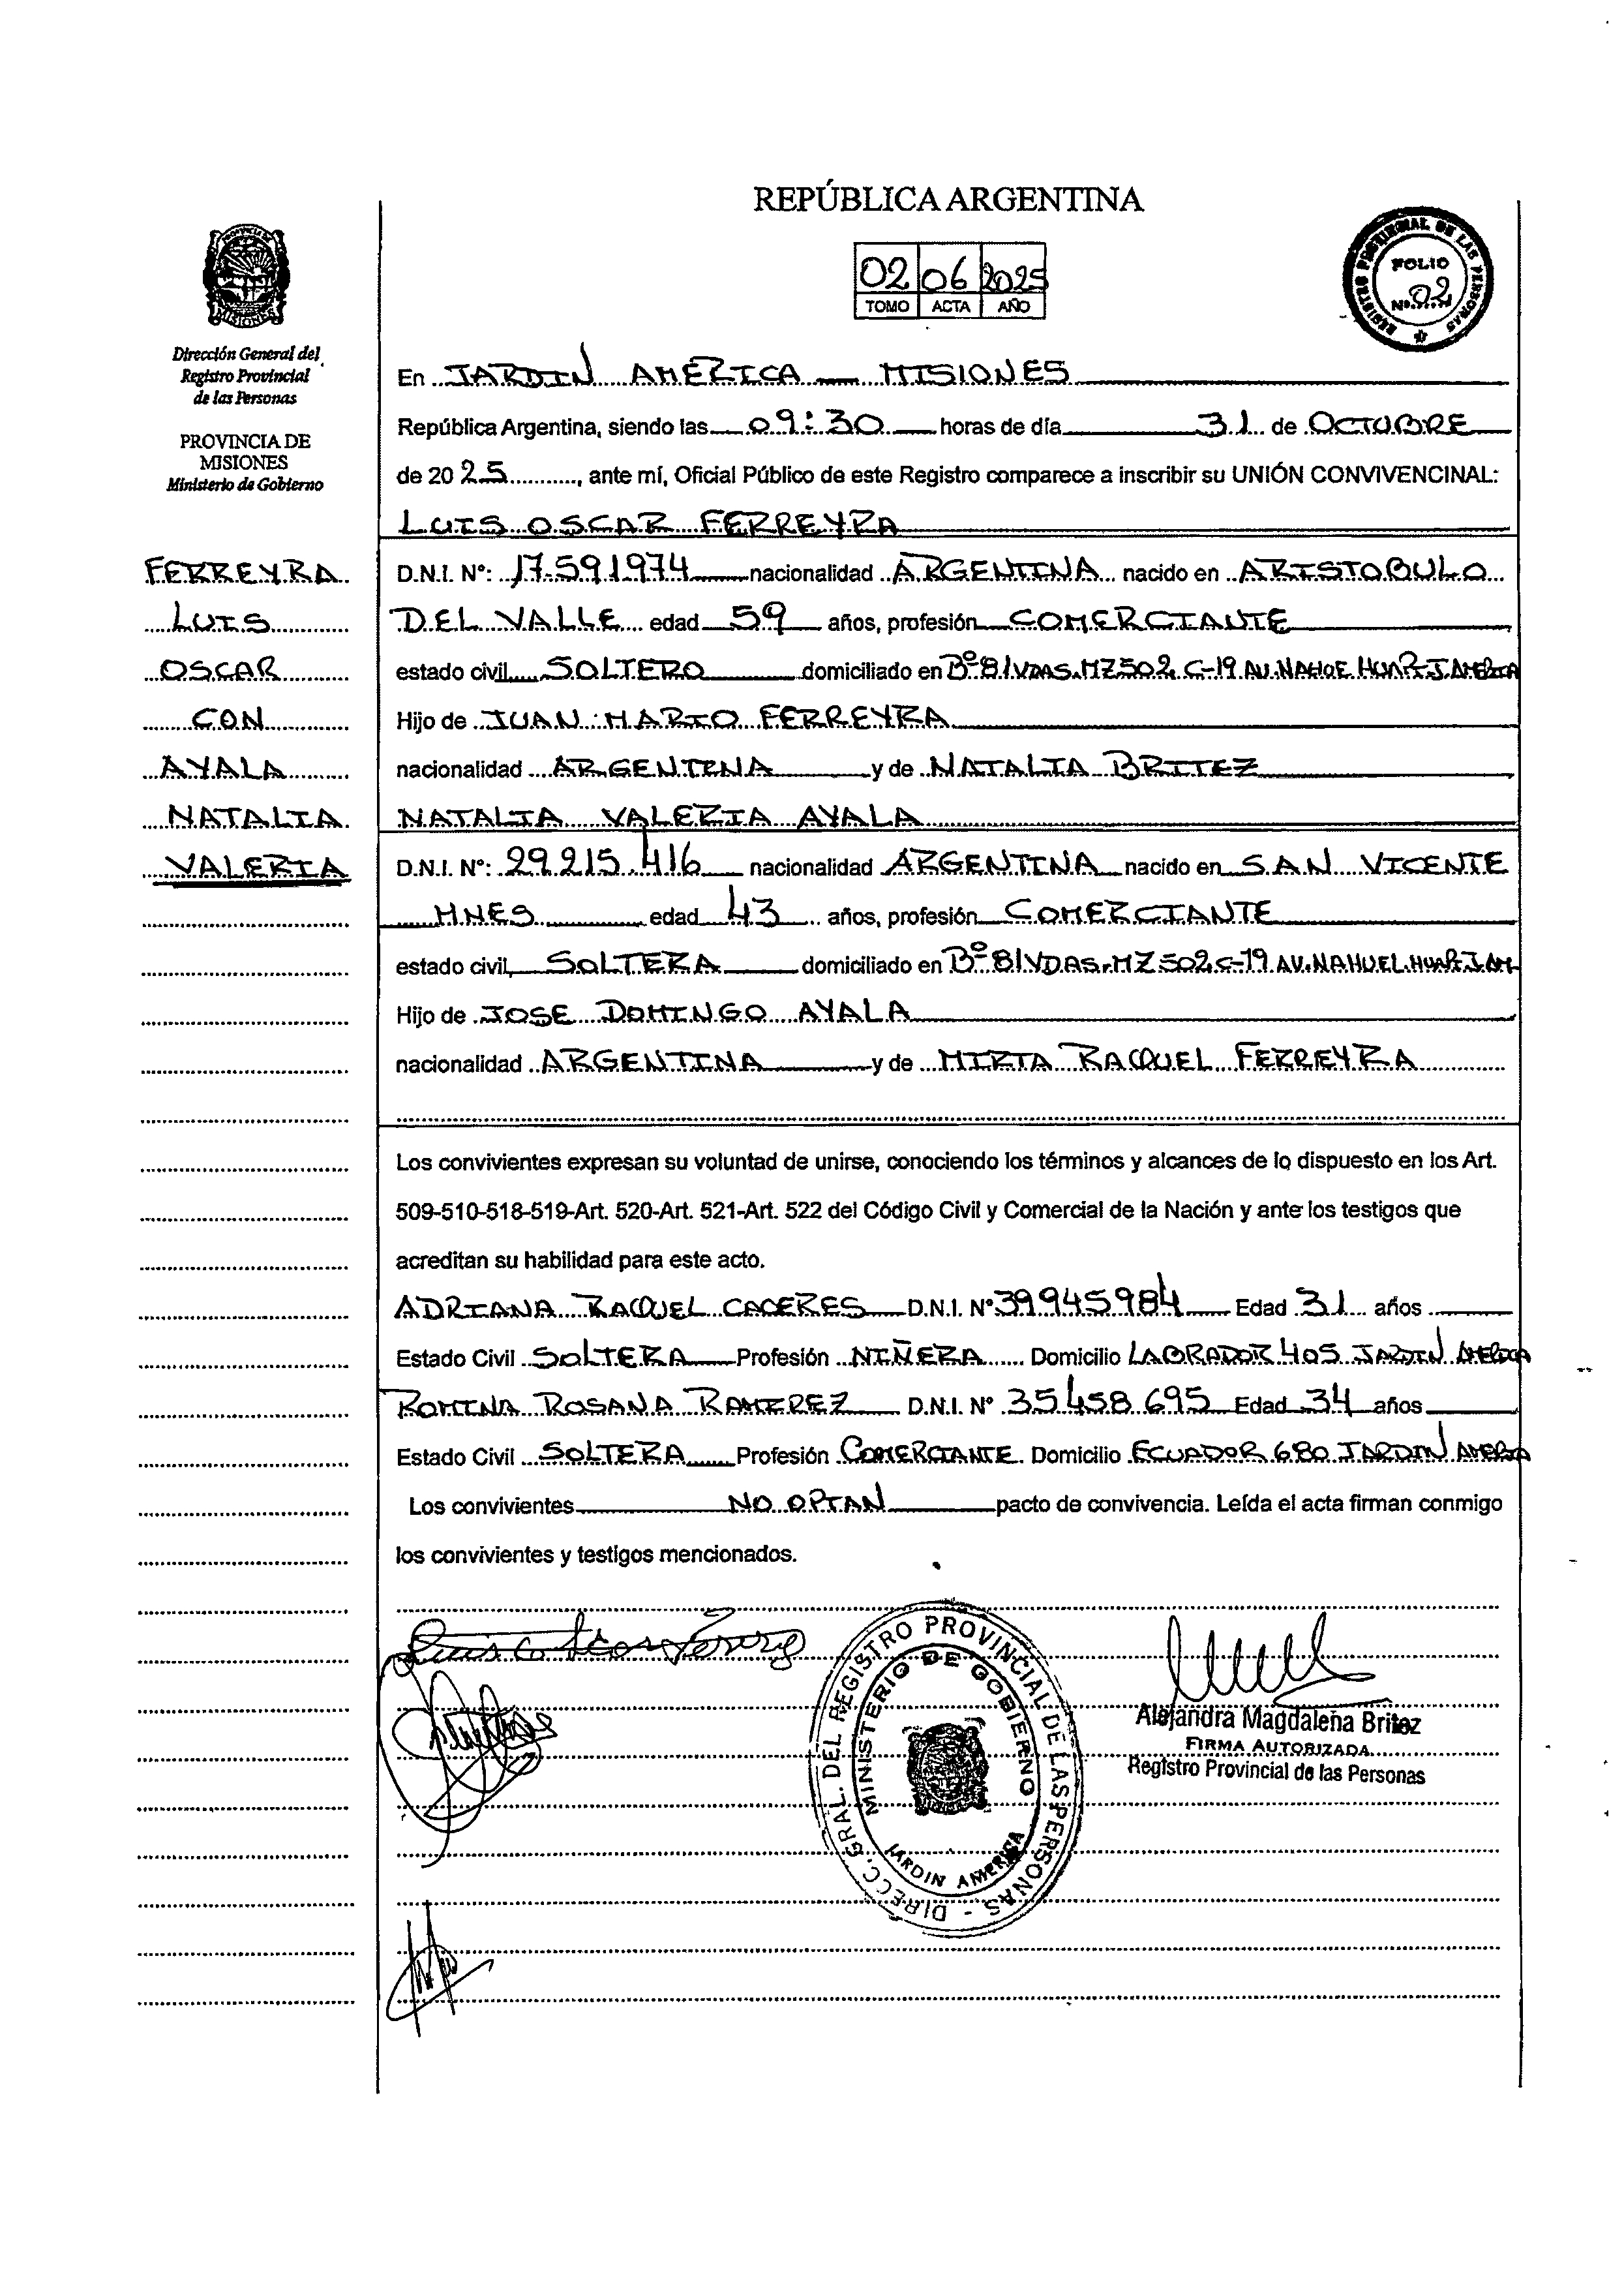 REPÚBLICA ARGENTINA
02 06 2025
TOMO ACTA AÑO
REGISTRO PROVINCIAL DE LAS PERSONAS
FOLIO
Nº 02
PROVINCIA DE
MISIONES
Dirección General del
Registro Provincial
de las Personas
PROVINCIA DE
MISIONES
Ministerio de Gobierno
FERREYRA
LUIS
OSCAR
CON
AYALA
NATALIA
VALERIA
En JARDIN AMERICA — MISIONES
República Argentina, siendo las 09:30 horas de día 31 de OCTUBRE
de 2025, ante mí, Oficial Público de este Registro comparece a inscribir su UNIÓN CONVIVENCINAL:
LUIS OSCAR FERREYRA
D.N.I. Nº: 17.591974 nacionalidad ARGENTINA nacido en ARISTOBULO
DEL VALLE edad 59 años, profesión COMERCIANTE
estado civil SOLTERO domiciliado en Bº 81 VDAS. MZ 502 C-19 AV. NAHUE. HUAPI J. AMERICA
Hijo de JUAN MARIO FERREYRA
nacionalidad ARGENTINA y de NATALIA BRITEZ
NATALIA VALERIA AYALA
D.N.I. Nº: 29.215.416 nacionalidad ARGENTINA nacido en SAN VICENTE
MNES edad 43 años, profesión COMERCIANTE
estado civil SOLTERA domiciliado en Bº 81 VDAS. MZ 502 C-19 AV. NAHUEL. HUAPI J. AM-
Hijo de JOSE DOMINGO AYALA
nacionalidad ARGENTINA y de MIRTA RAQUEL FERREYRA
Los convivientes expresan su voluntad de unirse, conociendo los términos y alcances de lo dispuesto en los Art.
509-510-518-519-Art. 520-Art. 521-Art. 522 del Código Civil y Comercial de la Nación y ante los testigos que
acreditan su habilidad para este acto.
ADRIANA RAQUEL CACERES D.N.I. Nº 39945984 Edad 31 años
Estado Civil SOLTERA Profesión NIÑERA Domicilio LABRADOR 405 JARDIN AMERICA
ROMINA ROSANA RAMIREZ D.N.I. Nº 35458695 Edad 34 años
Estado Civil SOLTERA Profesión COMERCIANTE Domicilio ECUADOR 680 JARDIN AMERICA
Los convivientes NO OPTAN pacto de convivencia. Leída el acta firman conmigo
los convivientes y testigos mencionados.
DIRECC. GRAL. DEL REGISTRO PROVINCIAL DE LAS PERSONAS -
MINISTERIO DE GOBIERNO
JARDIN AMERICA
Alejandra Magdalena Britez
FIRMA AUTORIZADA
Registro Provincial de las Personas